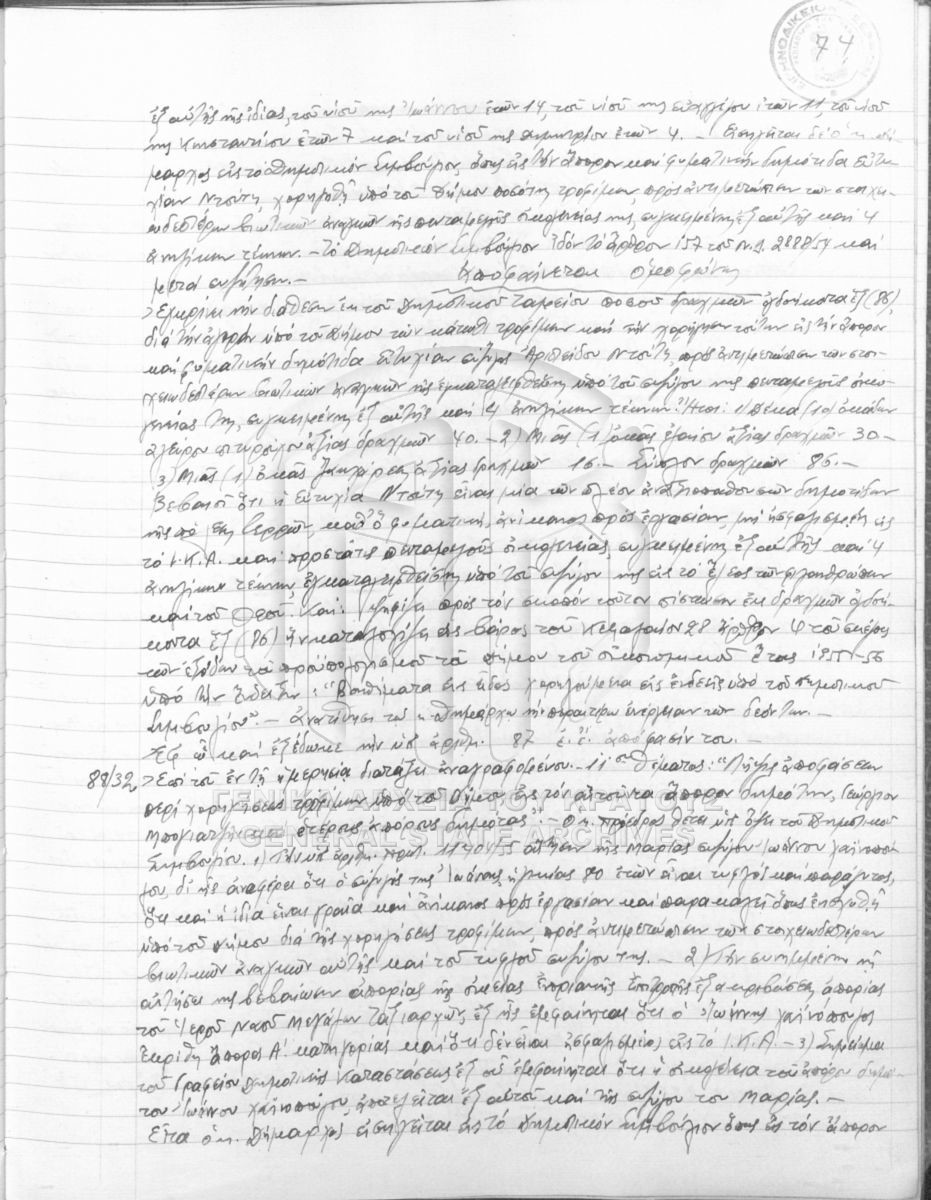 74
ἐξ αὐτῆς τῆς ἰδίας, τοῦ υἱοῦ της Ἰωάννου ἐτῶν 14, τοῦ υἱοῦ της Εὐαγγέλου ἐτῶν 11, τοῦ υἱοῦ
της Κωνσταντίνου ἐτῶν 7 καὶ τοῦ υἱοῦ της Δημητρίου ἐτῶν 4. – Εἰσηγεῖται δὲ ὁ κ. Δή-
μαρχος εἰς τὸ Δημοτικὸν Συμβούλιον, ὅπως εἰς τὴν ἄπορον καὶ φυματικὴν δημότιδα Εὐτυ-
χίαν Ντούτη, χορηγηθῇ ὑπὸ τοῦ Δήμου ποσότης τροφίμων, πρὸς ἀντιμετώπισιν τῶν στοιχει-
ωδεστέρων βιωτικῶν ἀναγκῶν τῆς πενταμελοῦς οἰκογενείας της, συγκειμένης ἐξ αὐτῆς καὶ 4
ἀνηλίκων τέκνων. – Τὸ Δημοτικὸν Συμβούλιον ἰδὸν τὸ ἄρθρον 157 τοῦ Ν.Δ. 2888/54 καὶ
μετὰ συζήτησιν. –
ἀποφαίνεται ὁμοφώνως
Ἐγκρίνει τὴν διάθεσιν ἐκ τοῦ Δημοτικοῦ Ταμείου ποσοῦ δραχμῶν ὀγδοήκοντα ἓξ (86),
διὰ τὴν ἀγορὰν ὑπὸ τοῦ Δήμου τῶν κάτωθι τροφίμων καὶ τὴν χορήγησιν τούτων εἰς τὴν ἄπορον
καὶ φυματικὴν δημότιδα Εὐτυχίαν σύζυγον Ἀριστείδου Ντούτη, πρὸς ἀντιμετώπισιν τῶν στοι-
χειωδεστέρων βιωτικῶν ἀναγκῶν τῆς ἐγκαταλειφθείσης ὑπὸ τοῦ συζύγου της πενταμελοῦς οἰκο-
γενείας της, συγκειμένης ἐξ αὐτῆς καὶ 4 ἀνηλίκων τέκνων. Ἤτοι: 1) Δέκα (10) ὀκάδων
ἀλεύρου πιτυρούχου ἀξίας δραχμῶν 40. – 2) Μιᾶς (1) ὀκᾶς ἐλαίου ἀξίας δραχμῶν 30 –
3) Μιᾶς (1) ὀκᾶς ζακχάρεως ἀξίας δραχμῶν 16. – Σύνολον δραχμῶν 86. –
Βεβαιοῖ ὅτι ἡ Εὐτυχία Ντούτη εἶναι μία τῶν πλέον ἀναξιοπαθουσῶν δημοτίδων
τῆς πόλεως Σερρῶν, καθ' ὃ φυματική, ἀνίκανος πρὸς ἐργασίαν, μὴ ἠσφαλισμένη εἰς
τὸ Ι.Κ.Α. καὶ προστάτις πενταμελοῦς οἰκογενείας, συγκειμένης ἐξ αὐτῆς καὶ 4
ἀνηλίκων τέκνων, ἐγκαταλειφθείσης ὑπὸ τοῦ συζύγου της εἰς τὸ ἔλεος τῶν φιλανθρώπων
καὶ τοῦ Θεοῦ. Καὶ: Ψηφίζει πρὸς τὸν σκοπὸν τοῦτον πίστωσιν ἐκ δραχμῶν ὀγδοή-
κοντα ἓξ (86) ἣν καταλογίζει εἰς βάρος τοῦ Κεφαλαίου 28 ἄρθρον 4 τοῦ σκέλους
τῶν ἐξόδων τοῦ προϋπολογισμοῦ τοῦ Δήμου τοῦ οἰκονομικοῦ ἔτους 1955-56
ὑπὸ τὴν ἔνδειξιν: "Βοηθήματα εἰς εἶδος χορηγούμενα εἰς ἐνδεεῖς ὑπὸ τοῦ Δημοτικοῦ
Συμβουλίου". – Ἀνατίθησι τῷ κ. Δημάρχῳ τὴν περαιτέρω ἐνέργειαν τῶν δεόντων. –
Ἐφ' ᾧ καὶ ἐξέδωκε τὴν ὑπ' ἀριθμ. 87 ἐ.ἔ. ἀπόφασίν του. –
88/32 Ἐπὶ τοῦ ἐν τῇ ἡμερησίᾳ διατάξει ἀναγραφομένου 11ου θέματος: "Λῆψις ἀποφάσεων
περὶ χορηγήσεως τροφίμων ὑπὸ τοῦ Δήμου εἰς τὸν αἰτοῦντα ἄπορον δημότην, Γεώργιον
καὶ ἑτέρους ἀπόρους δημότας". – Ὁ κ. Πρόεδρος θέτει ὑπ' ὄψει τοῦ Δημοτικοῦ
Συμβουλίου. 1) Τὴν ὑπ' ἀριθμ. πρωτ. αἴτησιν τῆς Μαρίας συζύγου Ἰωάννου
δι' ἧς ἀναφέρει ὅτι ὁ σύζυγός της Ἰωάννης, ἡλικίας 80 ἐτῶν εἶναι τυφλὸς καὶ παράλυτος,
ὅτι καὶ ἡ ἰδία εἶναι γραῖα καὶ ἀνίκανος πρὸς ἐργασίαν καὶ παρακαλεῖ ὅπως ἐνισχυθῇ
ὑπὸ τοῦ Δήμου διὰ τῆς χορηγήσεως τροφίμων, πρὸς ἀντιμετώπισιν τῶν στοιχειωδεστέρων
βιωτικῶν ἀναγκῶν αὐτῆς καὶ τοῦ τυφλοῦ συζύγου της. – 2) Τὴν συνημμένην τῇ
αἰτήσει της βεβαίωσιν ἀπορίας τῆς οἰκείας Ἐνοριακῆς Ἐπιτροπῆς ἐξακριβώσεως ἀπορίας
τοῦ Ἱεροῦ Ναοῦ Μεγάλων Ταξιαρχῶν ἐξ ἧς ἐμφαίνεται ὅτι ὁ Ἰωάννης
ἐκρίθη ἄπορος Α' κατηγορίας καὶ ὅτι δὲν εἶναι ἠσφαλισμένος εἰς τὸ Ι.Κ.Α. – 3) Σημείωμα
τοῦ Γραφείου Δημοτικῆς Καταστάσεως ἐξ οὗ ἐμφαίνεται ὅτι ἡ οἰκογένεια τοῦ ἀπόρου δημό-
του Ἰωάννου ἀποτελεῖται ἐξ αὐτοῦ καὶ τῆς συζύγου του Μαρίας. –
Εἶτα ὁ κ. Δήμαρχος εἰσηγεῖται εἰς τὸ Δημοτικὸν Συμβούλιον ὅπως εἰς τὸν ἄπορον
ΓΕΝΙΚΑ ΑΡΧΕΙΑ ΤΟΥ ΚΡΑΤΟΥΣ
GENERAL STATE ARCHIVES